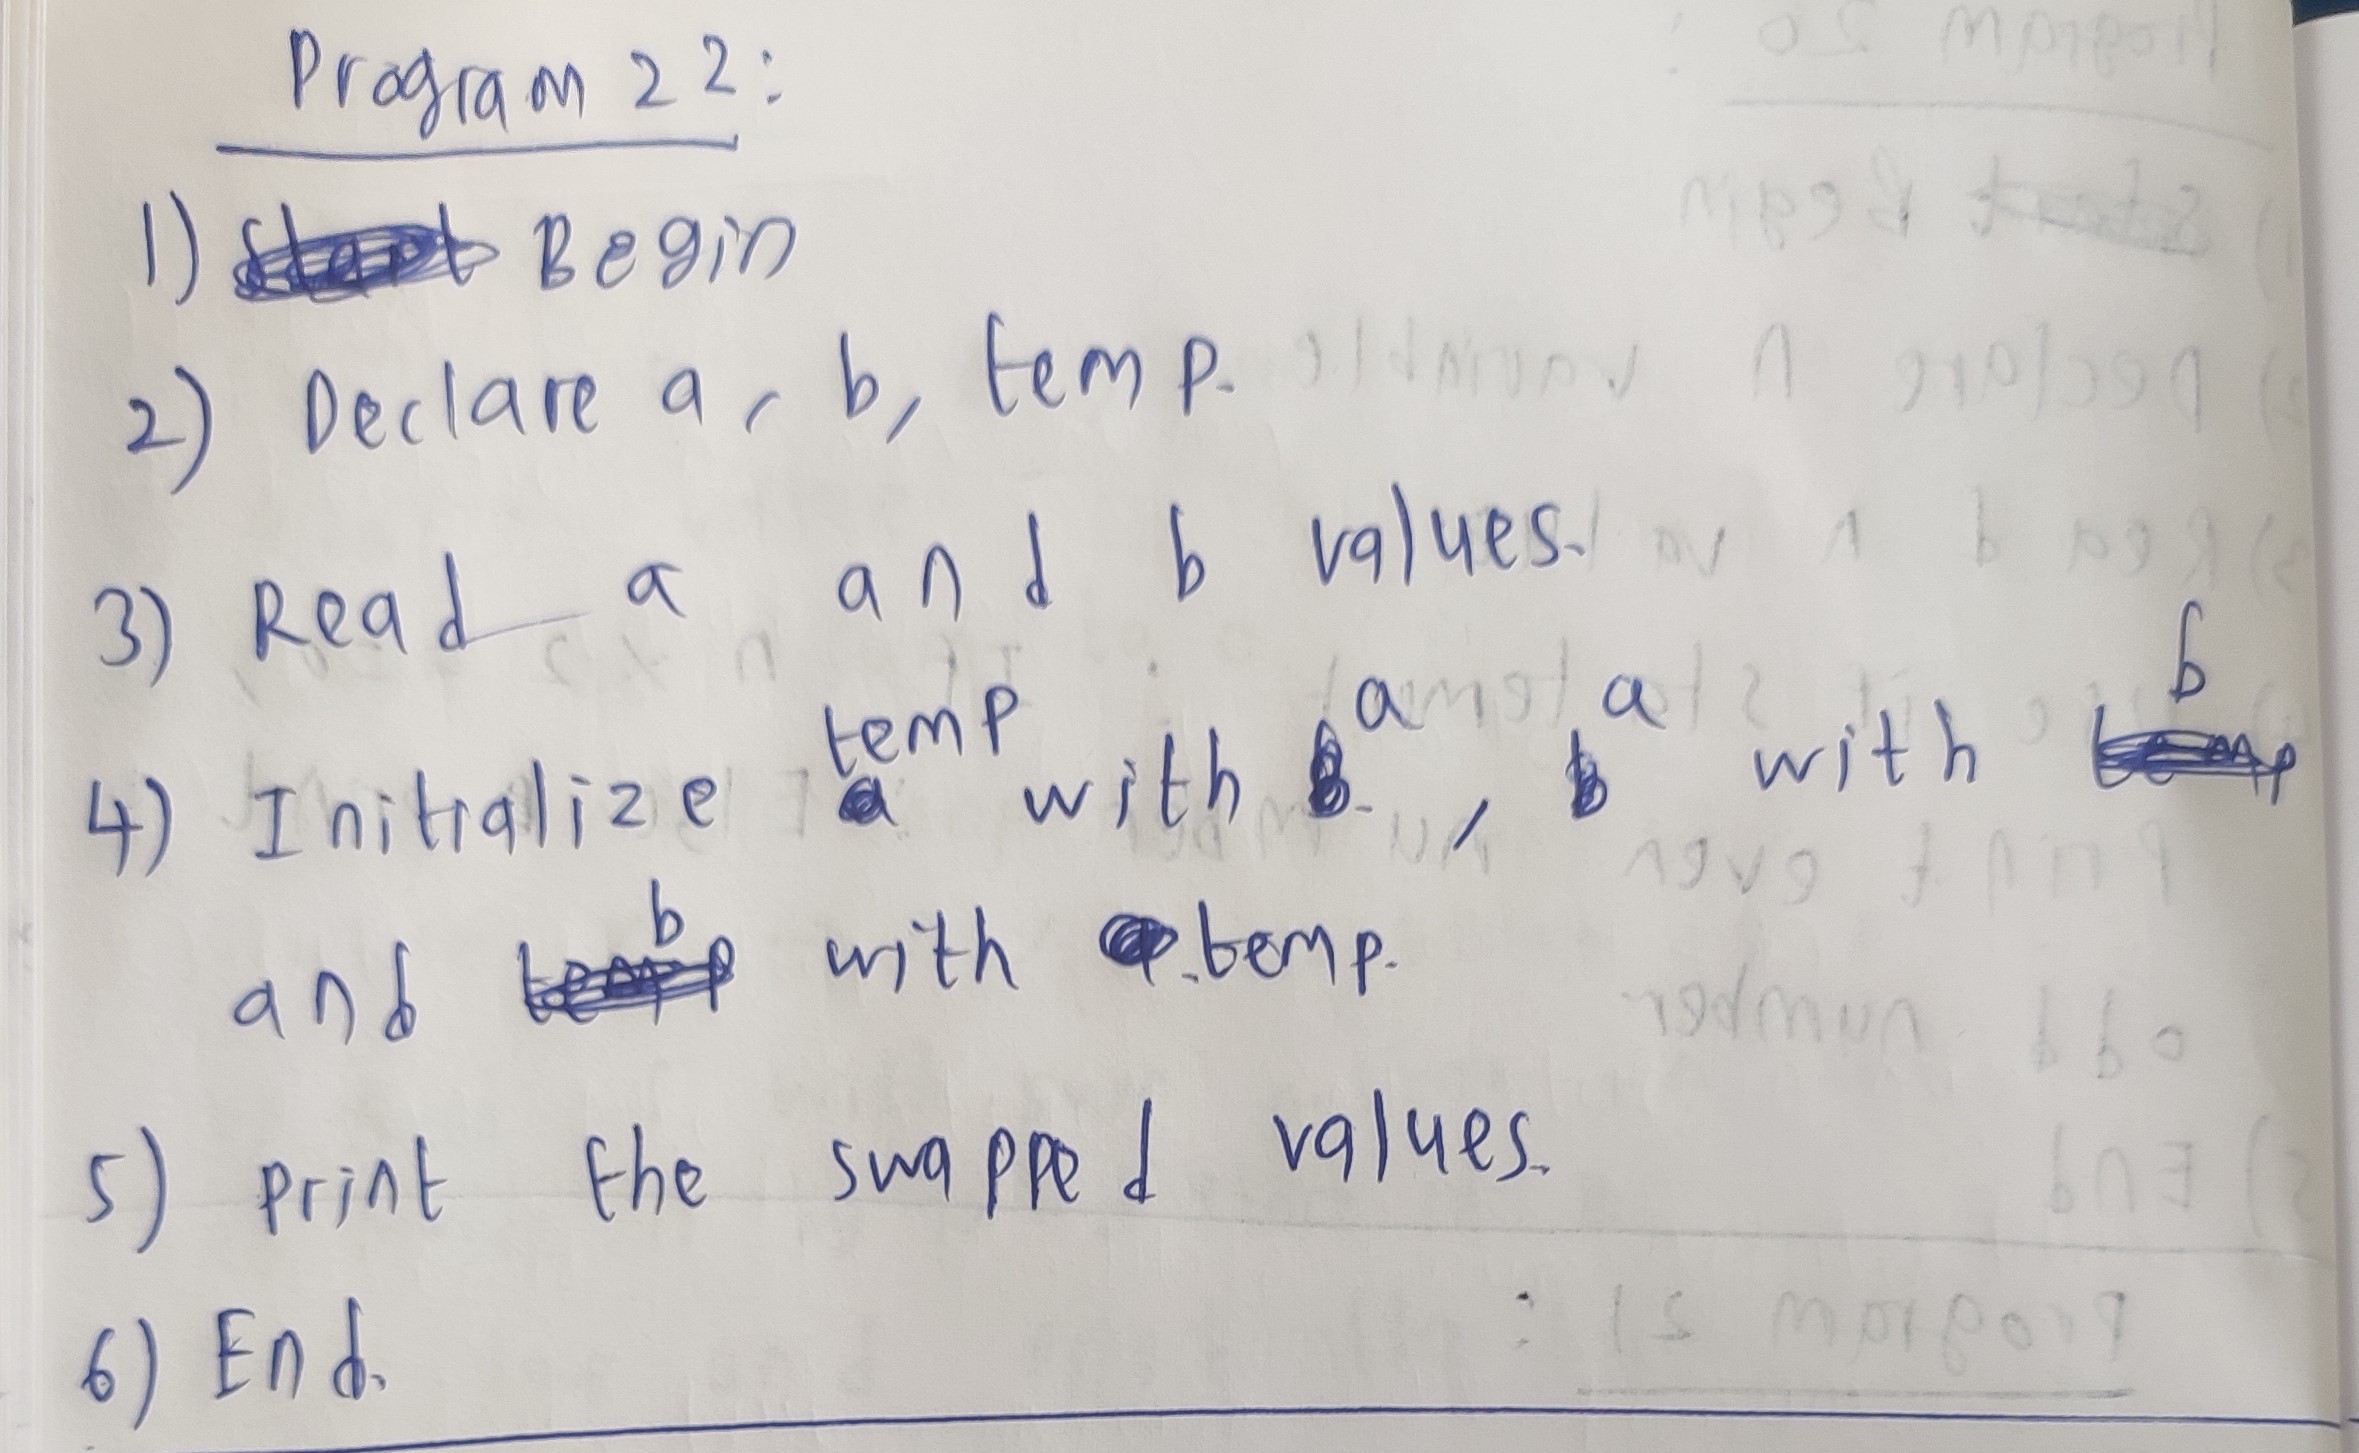 Program 22:
1) Begin
2) Declare a, b, temp.
3) Read a and b values.
4) Initialize temp with a, a with b
and b with temp.
5) print the swapped values.
6) End.